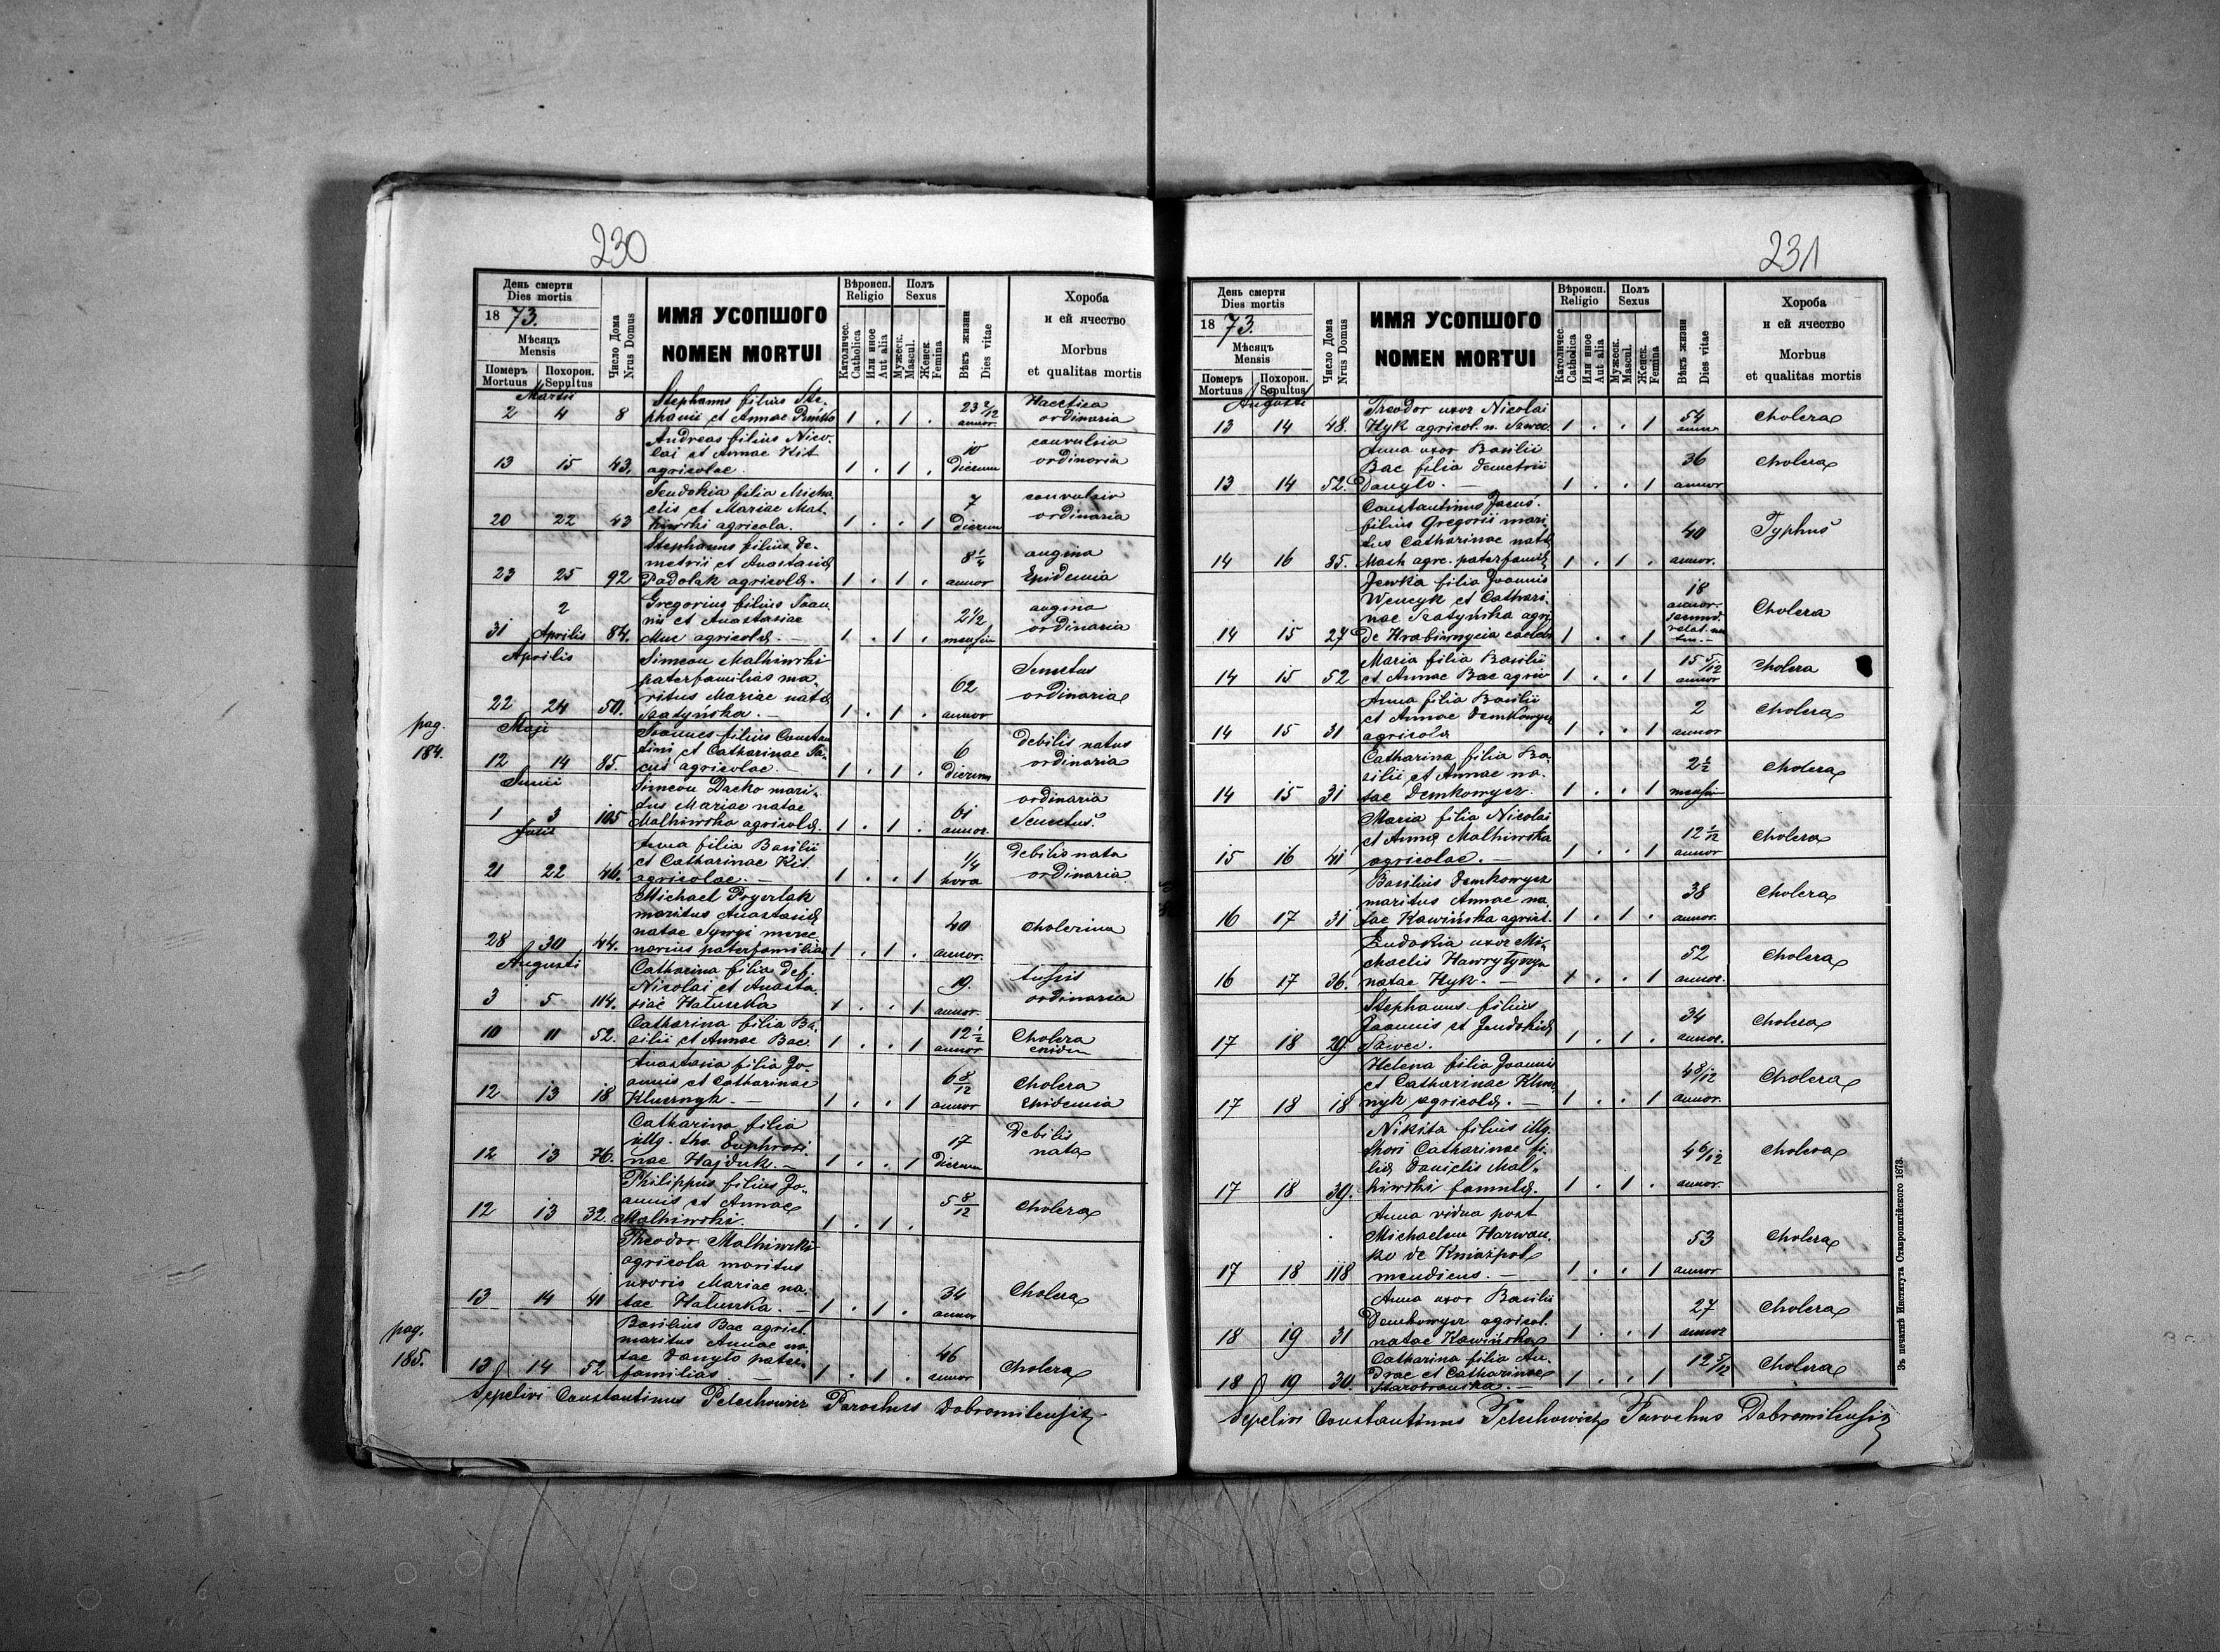 230
День смерти
Dies mortis
1873.
Мѣсяцъ
Mensis
Померъ Похорон.
Mortuus Sepultus
Число Дома
Nrus Domus
ИМЯ УСОПШОГО
NOMEN MORTUI
Вѣроисп.
Religio
Католичес.
Catholica
Или иное
Aut alia
Полъ
Sexus
Мужеск.
Mascul.
Женск.
Femina
Вѣкъ жизни
Dies vitae
Хороба
и ей ячество
Morbus
et qualitas mortis
Martii
Stephanus filius Ste-
2 4 8 phanii et Annae 1 . 1 . 23 2/12 annor. ordinaria
Andreas filius Nico-
lai et Annae Kit
13 15 43. agricolae. 1 . 1 . 10 Dierum convulsio ordinaria
Eudokia filia Micha-
elis et Mariae Mal-
20 22 43 hiwski agricola. 1 . . 1 7 Dierum convulsio ordinaria
Stephanus filius De-
metrii et Anastasiae
23 25 92 Padolak agricolae. 1 . 1 . 8 1/4 annor angina Epidemia
Gregorius filius Joan-
nis et Anastasiae
31 2 Aprilis 84. agricolae. 1 . 1 . 2 1/2 mensium angina ordinaria
Aprilis
Simeon Malhiwski
paterfamilias ma-
ritus Mariae natae
22 24 50. Szatyńska. 1 . 1 . 62 annor Senectus ordinaria
pag.
184.
Maji
Joannes filius Constan
tini et Catharinae Ja-
12 14 85. cuś agricolae. 1 . 1 . 6 Dierum Debilis natus ordinaria
Junii
Simeon Dacko mari-
tus Mariae natae
1 3 105 Malhiwska agricolae. 1 . 1 . 61 annor. ordinaria Senectus.
Julii
Anna filia Basilii
et Catharinae Kit
21 22 46. agricolae. 1 . . 1 1/4 hora Debilis nata ordinaria
Michael Prystak
maritus Anastasiae
natae merce-
28 30 44. narius paterfamilias 1 . 1 . 40 annor. cholerina
Augusti
Catharina filia Def.
Nicolai et Anasta-
3 5 114. siae Hałuszka 1 . . 1 19. annor. tussis ordinaria
Catharina filia Ba-
10 11 52. silii et Annae Bac. 1 . . 1 12 1/2 annor Cholera epidem
Anastasia filia Jo-
annis et Catharinae
12 13 18 Klusznyk. 1 . . 1 6 8/12 annor Cholera Epidemia
Catharina filia
illg. tho. Euphrosi-
12 13 76. nae Hajduk. 1 . . 1 17 Dierum Debilis nata
Philippus filius Jo-
annis et Annae
12 13 32. Malhiwski. 1 . 1 . 5 8/12 Cholera
Theodor Malhiwski
agricola maritus
uxoris Mariae na-
13 14 41 tae Hałuszka. 1 . 1 . 34 annor Cholera
Basilius Bac agricl.
maritus Annae na-
tae Danyło pater-
13 14 52 familias. 1 . 1 . 46 annor Cholera
pag.
185.
Sepelivi Constantinus Peleshowicz Parochus Dobromilensis
231
День смерти
Dies mortis
1873.
Мѣсяцъ
Mensis
Померъ Похорон.
Mortuus Sepultus
Число Дома
Nrus Domus
ИМЯ УСОПШОГО
NOMEN MORTUI
Вѣроисп.
Religio
Католичес.
Catholica
Или иное
Aut alia
Полъ
Sexus
Мужеск.
Mascul.
Женск.
Femina
Вѣкъ жизни
Dies vitae
Хороба
и ей ячество
Morbus
et qualitas mortis
Augusti
Theodor uxor Nicolai
13 14 48. Hyk agricol. n. Sawec. 1 . . 1 54 annor Cholera
Anna uxor Basilii
Bac filia Demetrii
13 14 52. Danyło. 1 . . 1 36 annor Cholera
Constantinus Jacuś
filius Gregorii mari-
tus Catharinae natae
14 16 85. Mash agrc. paterfamil 1 . 1 . 40 annor. Typhus
Jewka filia Joannis
Wencyk et Cathari-
nae Szatyńska agri-
14 15 27 de 1 . . 1 18 annor. Cholera
Maria filia Basilii
14 15 52 et Annae Bac agric 1 . . 1 15 5/12 annor Cholera
Anna filia Basilii
et Annae Demkowycz
14 15 31 agricolae 1 . . 1 2 annor Cholera
Catharina filia Ba-
silii et Annae na-
14 15 31 tae Demkowycz. 1 . . 1 2 1/2 mensium Cholera
Maria filia Nicolai
et Annae Malhiwska
15 16 41 agricolae. 1 . . 1 12 1/12 annor Cholera
Basilius Demkowycz
maritus Annae na-
16 17 31 tae Kawińska agricl. 1 . 1 . 38 annor. Cholera
Eudokia uxor Mi-
chaelis Hawryłyszyn
16 17 36. natae Hyk. 1 . . 1 52 annor. Cholera
Stephanus filius
Joannis et Jeudokiae
17 18 29. Sawec. 1 . 1 . 34 annor. Cholera
Helena filia Joannis
et Catharinae Klusz
17 18 18 nyk agricolae. 1 . . 1 4 8/12 annor. Cholera
Nikita filius illg.
thori Catharinae fi-
liae Danielis Mal-
17 18 39. hiwski famulae. 1 . 1 . 4 6/12 annor. Cholera
Anna vidua post
Michaelem Harwan-
ko de Kniażpol
17 18 118 mendicus. 1 . . 1 53 annor Cholera
Anna uxor Basilii
Demkowycz agricol.
18 19 31 natae Kawińska 1 . . 1 27 annor Cholera
Catharina filia An-
dreae et Catharinae
18 19 30. 1 . . 1 12 5/12 Cholera
Sepelivi Constantinus Peleshowicz Parochus Dobromilensis
Зъ печатнѣ Института Ставропигійского 1873.